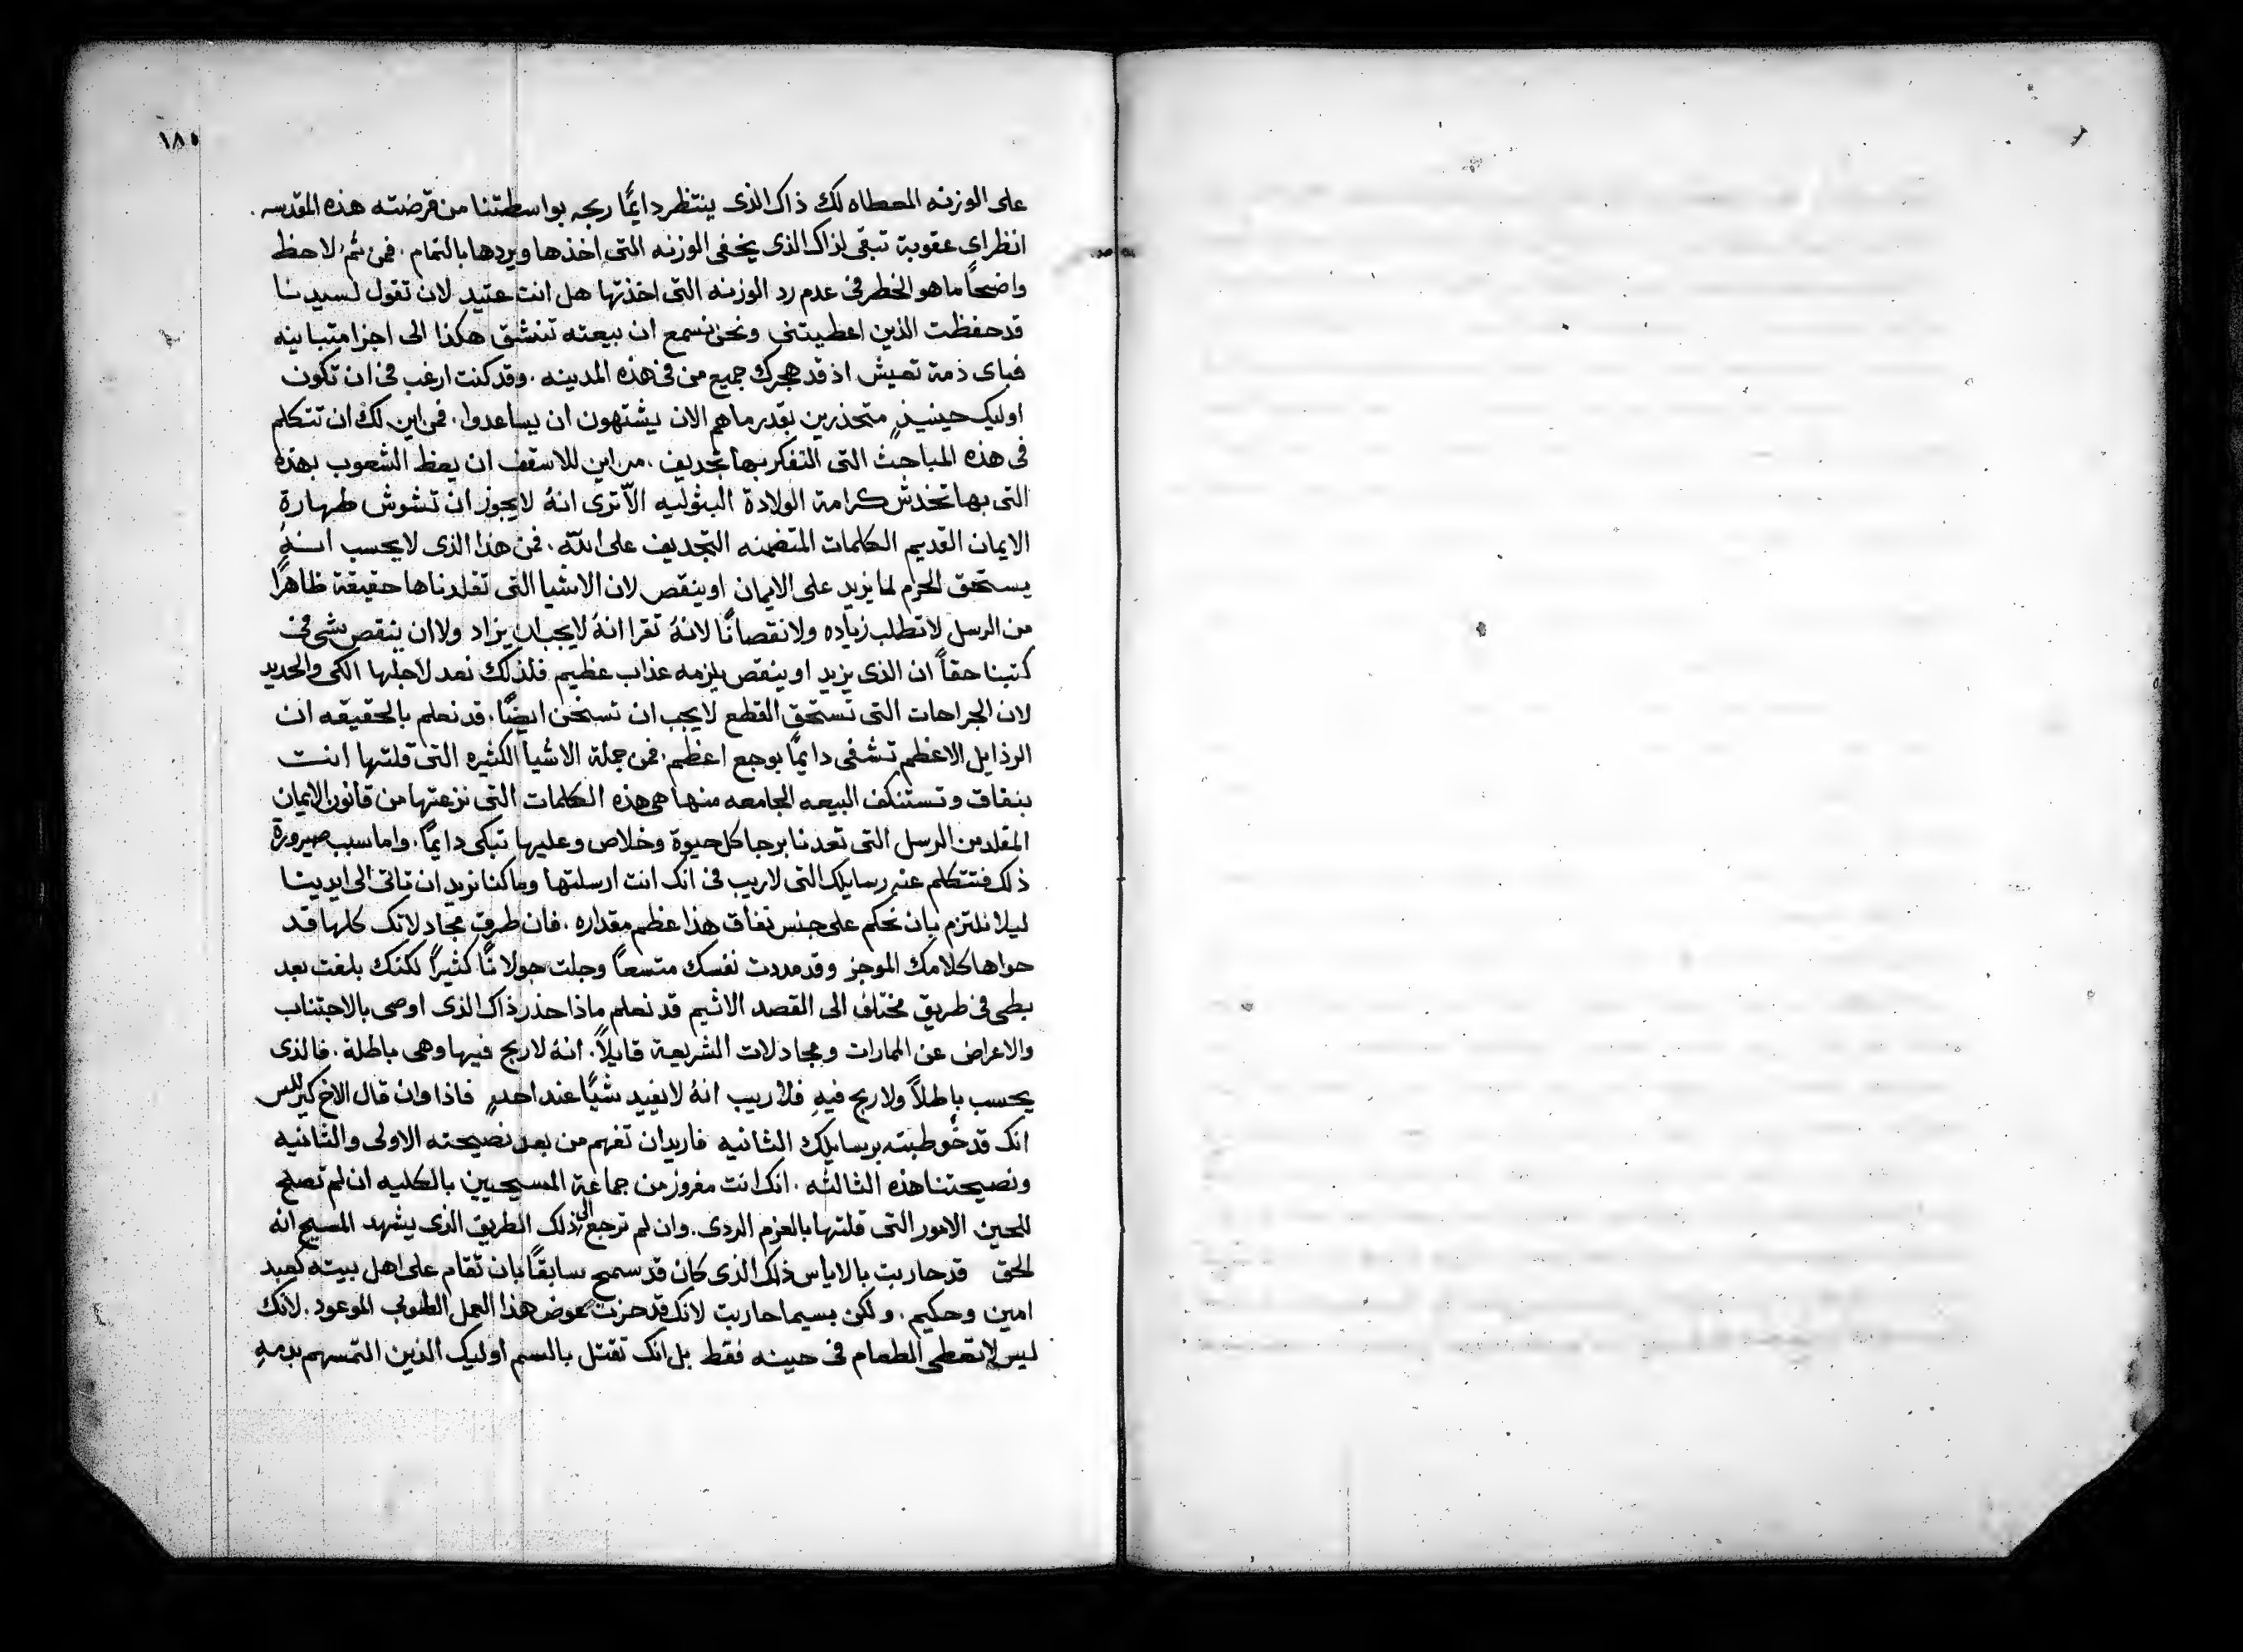 ١٨٥
على الوزنه المعطاه لك ذاك الذى ينتظر دايمًا ربحه بواسطتنا من قرضته هذه المقدسه.
انظر اى عقوبة تبقى لذاك الذى يخفى الوزنه التى اخذها ويردها بالتمام. فمن ثمُ لاحظ
واضحًا ما هو الخطر فى عدم رد الوزنه التى اخذتها هل انت عتيد لان تقول لسيدنا
قد حفظت الذين اعطيتنى ونحن نسمع ان بيعته تنشق هكذا الى اجزا متباينه
فباى ذمة تعيش اذ قد هجرك جميع من فى هذه المدينه. وقد كنت ارغب فى ان تكون
اوليك حينيذٍ متحذرين بقدر ما هم الان يشتهون ان يساعدوا. فمن اين لك ان تتكلم
فى هذه المباحث التى التفكر بها تجديف. من اين للاسقف ان يعظ الشعوب بهذه
التى بها تخدش كرامة الولادة البثوليه الّا ترى انهُ لا يجوز ان تشوش طهارة
الايمان القديم الكلمات المتضمنه التجديف على الله. فمن هذا الذى لا يحسب انهُ
يستحق الحرم لما يزيد على الايمان او ينقص لان الاشيا التى تقلدناها حقيقة ظاهرًا
من الرسل لا تطلب زياده ولا نقصانًا لانهُ تقرا انهُ لا يجب ان يزاد ولا ان ينقص شى فى
كتبنا حقاً ان الذى يزيد او ينقص يلزمه عذاب عظيم فلذلك نعد لاجلها الكى والحديد
لان الجراحات التى تستحق القطع لا يجب ان تسخن ايضًا. قد نعلم بالحقيقه ان
الرذايل الاعظم تشفى دايمًا بوجع اعظم. فمن جملة الاشيا الكثيره التى قلتها انت
بنفاق وتستنكف البيعه الجامعه منها هى هذه الكلمات التى نزعتها من قانون الايمان
المقلد من الرسل التى تعدنا برجا كل حيوة وخلاص وعليها تبكى دايمًا. واما سبب صيرورة
ذلك فتتكلم عنه رسايلك التى لا ريب فى انك انت ارسلتها وما كنا نريد ان تاتى الى ايدينا
ليلا نلتزم بان نحكم على جنس نفاق هذا عظم مقداره. فان طرق مجادلاتك كلها قد
حواها كلامك الموجز وقد مددت نفسك متسعاً وجلت جولانًا كثيرًا لكنك بلغت بعد
بطى فى طريق مختلف الى القصد الاثيم قد نعلم ماذا حذر ذاك الذى اوصى بالاجتناب
والاعراض عن الممارات ومجادلات الشريعة قايلاً. انهُ لا ربح فيها وهى باطلة. فالذى
يحسب باطلاً ولا ربح فيهِ فلا ريب انهُ لا يفيد شيًا عند احدٍ فاذا وان قال الاخ كيرللس
انك قد خوطبته برسايلك الثانيه فاريد ان تفهم من بعد نصيحته الاولى والثانيه
ونصيحتنا هذه الثالثه. انك انت مفروز من جماعة المسيحيين بالكليه ان لم تصلح
للحين الامور التى قلتها بالعزم الردى. وان لم ترجع الى ذلك الطريق الذى يشهد المسيح انه
الحق قد حاربت بالاياس ذلك الذى كان قد سمح سابقًا بان تقام على اهل بيته كعبد
امين وحكيم. ولكن بسيما حاربت لانك قد حزت عوض هذا العمل الطوبى الموعود. لانك
ليس لا تعطى الطعام فى حينه فقط بل انك تقتل بالسم اوليك الذين التمسهم بدمهِ